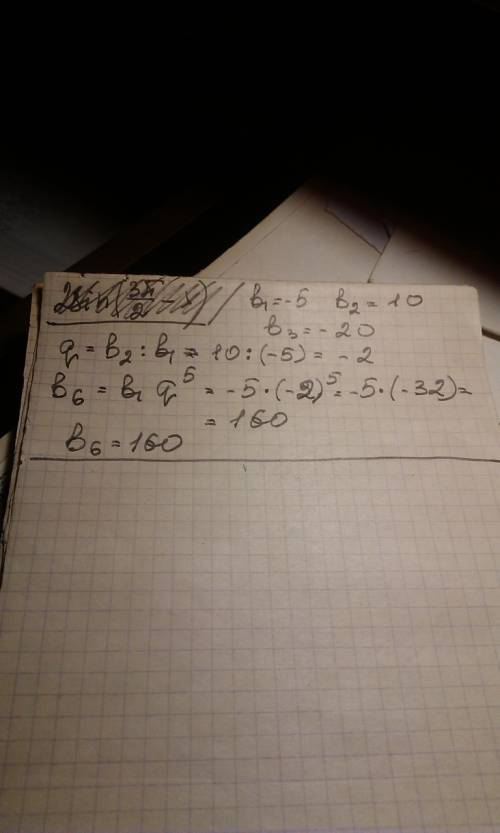 b₁=-5 b₂=10
b₃=-20
q=b₂:b₁=10:(-5)=-2
b₆=b₁q⁵=-5·(-2)⁵=-5·(-32)=
=160
b₆=160